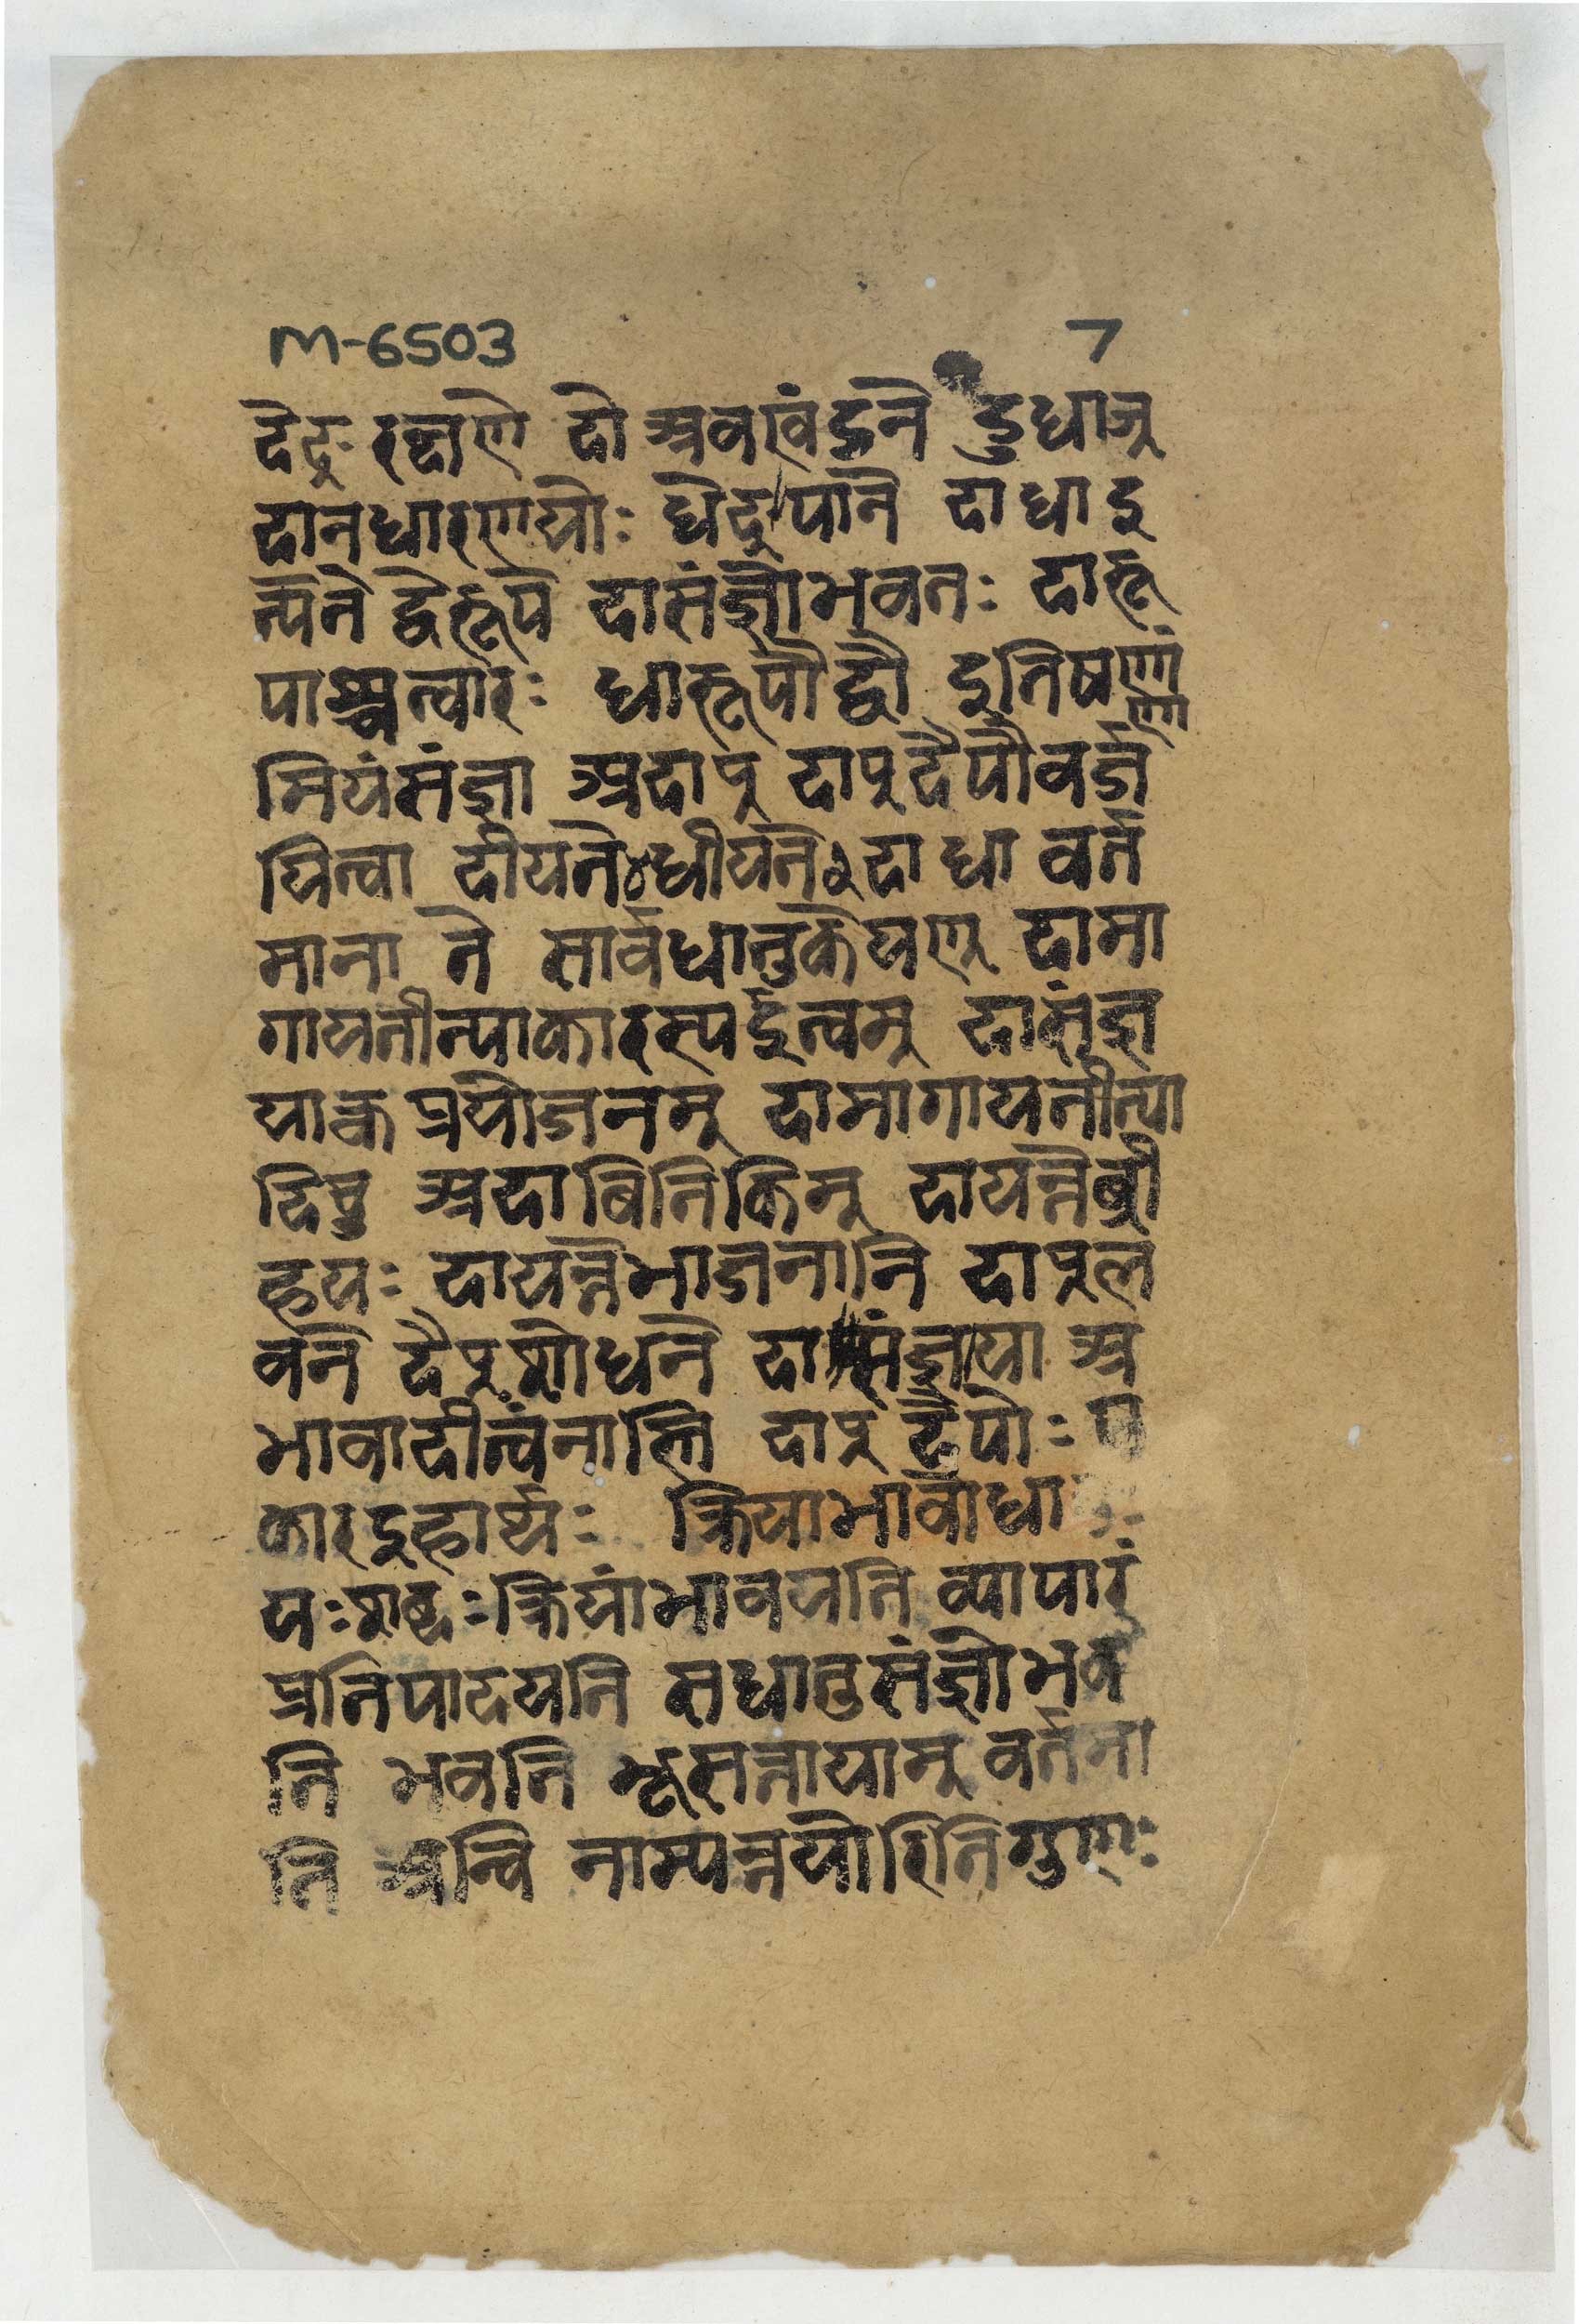 M-6503 7
देङ् रक्षणे दो अवखंडने डुधाञ्
दानधारणयोः धेट् पाने दाधाइ
त्येते द्वेरूपे दासंज्ञोभवतः दारू
पाश्चत्वारः धारूपौद्वौ इतिषण्णां
मियंसंज्ञा अदाप् दाप्दैपौवर्ज
यित्वा दीयते४धीयते२दाधा वर्त
माना ते सार्वधातुकेयण् दामा
गायतीत्याकारस्यईत्वम् दासंज्ञा
याक्वप्रयोजनम् दामागायतीत्या
दिषु अदाबितिकिम् दायन्तेव्री
हयः दायन्तेभाजनानि दाप्ल
वने दैप्शोधने दासंज्ञाया अ
भावादीत्वंनास्ति दाप् दैपोः प
कारइहार्थः क्रियाभावोधा
यःशब्दःक्रियांभावयति व्यापारं
प्रतिपादयति सधातुसंज्ञोभव
ति भवति भूसत्तायाम् वर्तमा
ति अन्वि नाम्यन्तयोरितिगुणः